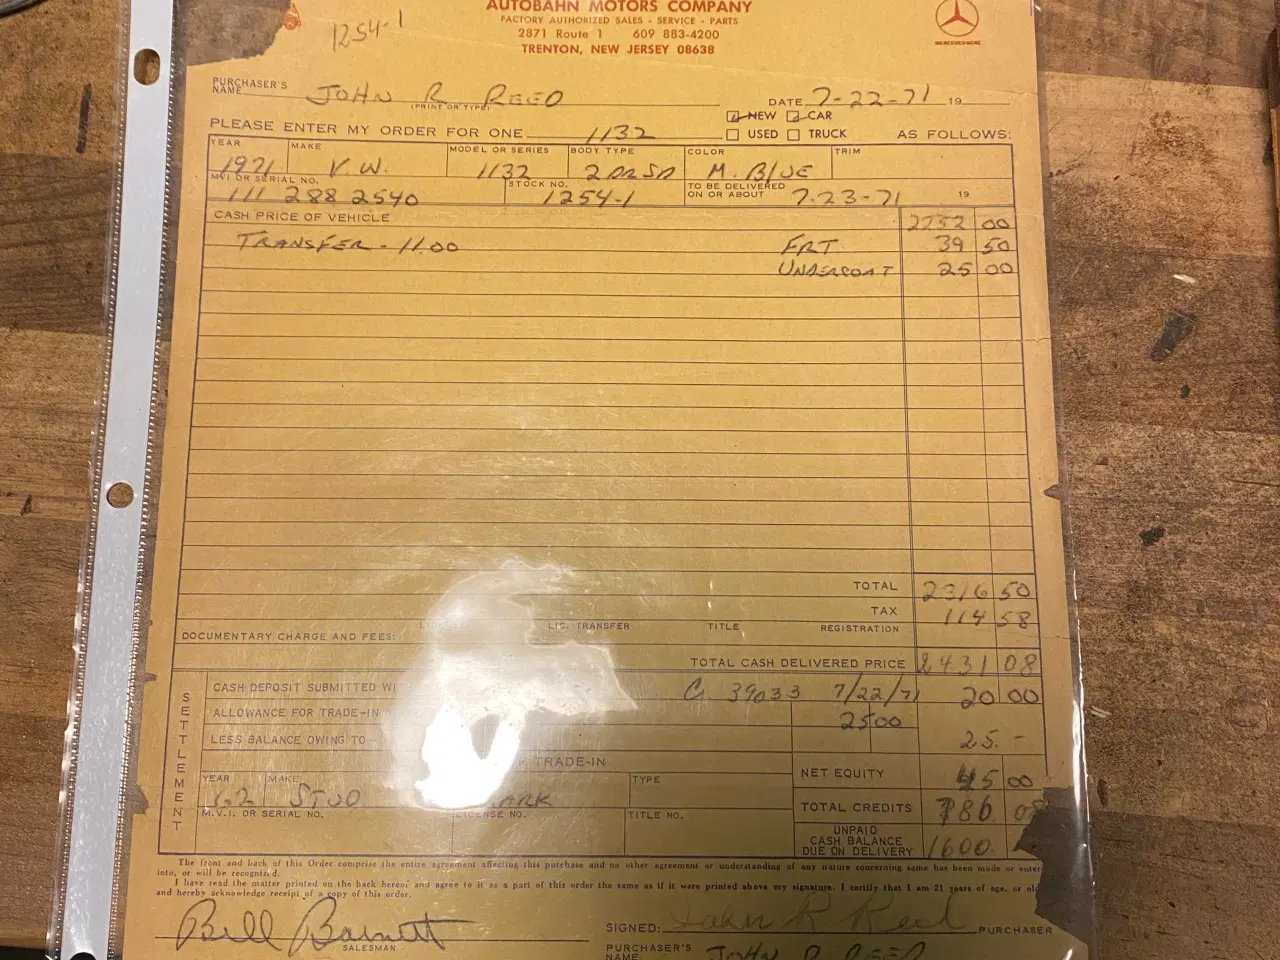 1254-1
AUTOBAHN MOTORS COMPANY
FACTORY AUTHORIZED SALES - SERVICE - PARTS
2871 Route 1 609 883-4200
TRENTON, NEW JERSEY 08638
MERCEDES-BENZ
PURCHASER'S NAME JOHN R REED DATE 7-22-71 19
(PRINT OR TYPE)
NEW CAR
PLEASE ENTER MY ORDER FOR ONE 1132 USED TRUCK AS FOLLOWS:
YEAR MAKE MODEL OR SERIES BODY TYPE COLOR TRIM
1971 V.W. 1132 2 DR SD M. BLUE
MVI OR SERIAL NO. STOCK NO. TO BE DELIVERED ON OR ABOUT
111 288 2540 1254-1 7-23-71 19
CASH PRICE OF VEHICLE 2252 00
TRANSFER - 11.00 FRT 39 50
UNDERCOAT 25 00
TOTAL 2316 50
TAX 114 58
DOCUMENTARY CHARGE AND FEES: LIC. TRANSFER TITLE REGISTRATION
TOTAL CASH DELIVERED PRICE 2431 08
SETTLEMENT
CASH DEPOSIT SUBMITTED 39033 7/22/71 20 00
ALLOWANCE FOR TRADE-IN 2500
LESS BALANCE OWING TO 25. -
TRADE-IN
NET EQUITY 45 00
YEAR MAKE TYPE
62 STUD ARK
TOTAL CREDITS 786 08
M.V.I. OR SERIAL NO. LICENSE NO. TITLE NO.
UNPAID CASH BALANCE DUE ON DELIVERY 1600.
The front and back of this Order comprise the entire agreement affecting this purchase and no other agreement or understanding of any nature concerning same has been made or enter
into, or will be recognized.
I have read the matter printed on the back hereof and agree to it as a part of this order the same as if it were printed above my signature. I certify that I am 21 years of age, or
and hereby acknowledge receipt of a copy of this order.
Bill Barnett SIGNED: John R Reed PURCHASER
SALESMAN
PURCHASER'S NAME JOHN R REED